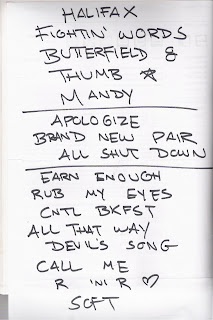 HALIFAX
FIGHTIN' WORDS
BUTTERFIELD &
THUMB ☆
MANDY
APOLOGIZE
BRAND NEW PAIR
ALL SHUT DOWN
EARN ENOUGH
RUB MY EYES
CNTL BKFST
ALL THAT WAY
DEVIL'S SONG
CALL ME
R 'N' R ♡
SCFT